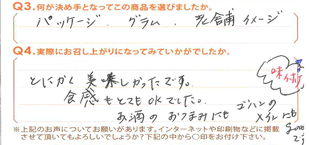 Q3.何が決め手となってこの商品を選びましたか。
パッケージ、グラム、乳酸菌イメージ
Q4.実際にお召し上がりになってみていかがでしたか。
とにかく美味しかったです。
食感もとてもOKでした。
お酒のおつまみにも ゴハンの
メインにも
goodです
味付け
※上記のお声についてお願いがあります。インターネットや印刷物などに掲載
させて頂いてもよろしいでしょうか？下記の中から○印をお付け下さい。